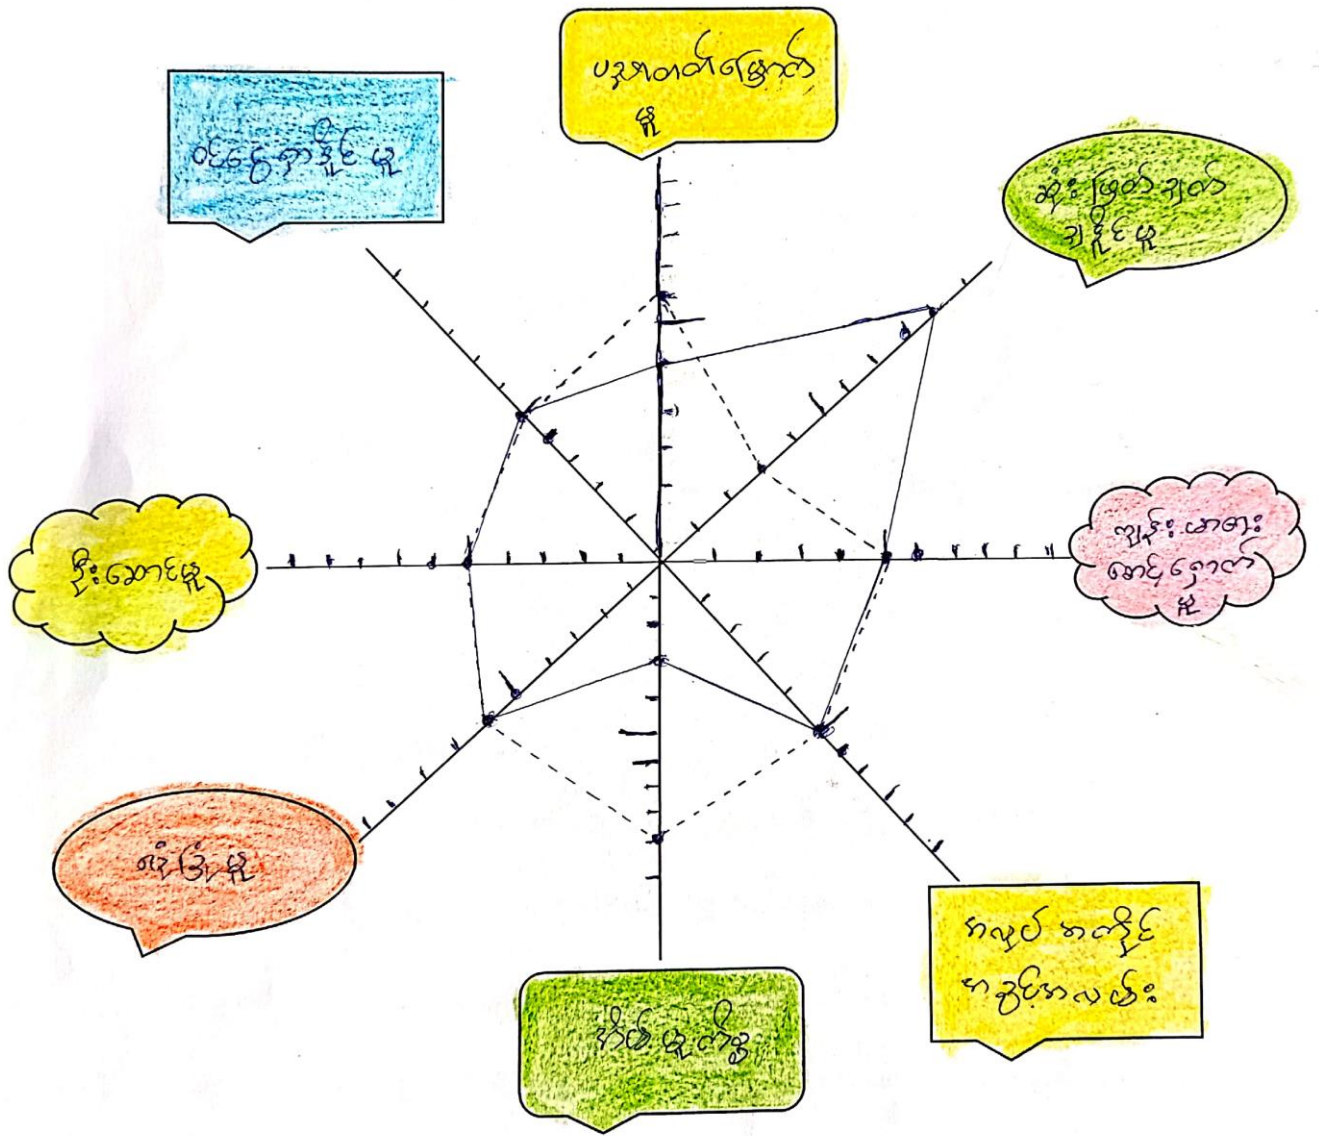 ပညာတတ်မြောက်
မှု
ဆုံးဖြတ်ချက်
ချနိုင်မှု
ကျန်းမာရေး
စောင့်ရှောက်
မှု
အလုပ်အကိုင်
အခွင့်အလမ်း
အိမ်မှုကိစ္စ
လုံခြုံမှု
ဦးဆောင်မှု
ဝင်ငွေရှာနိုင်မှု